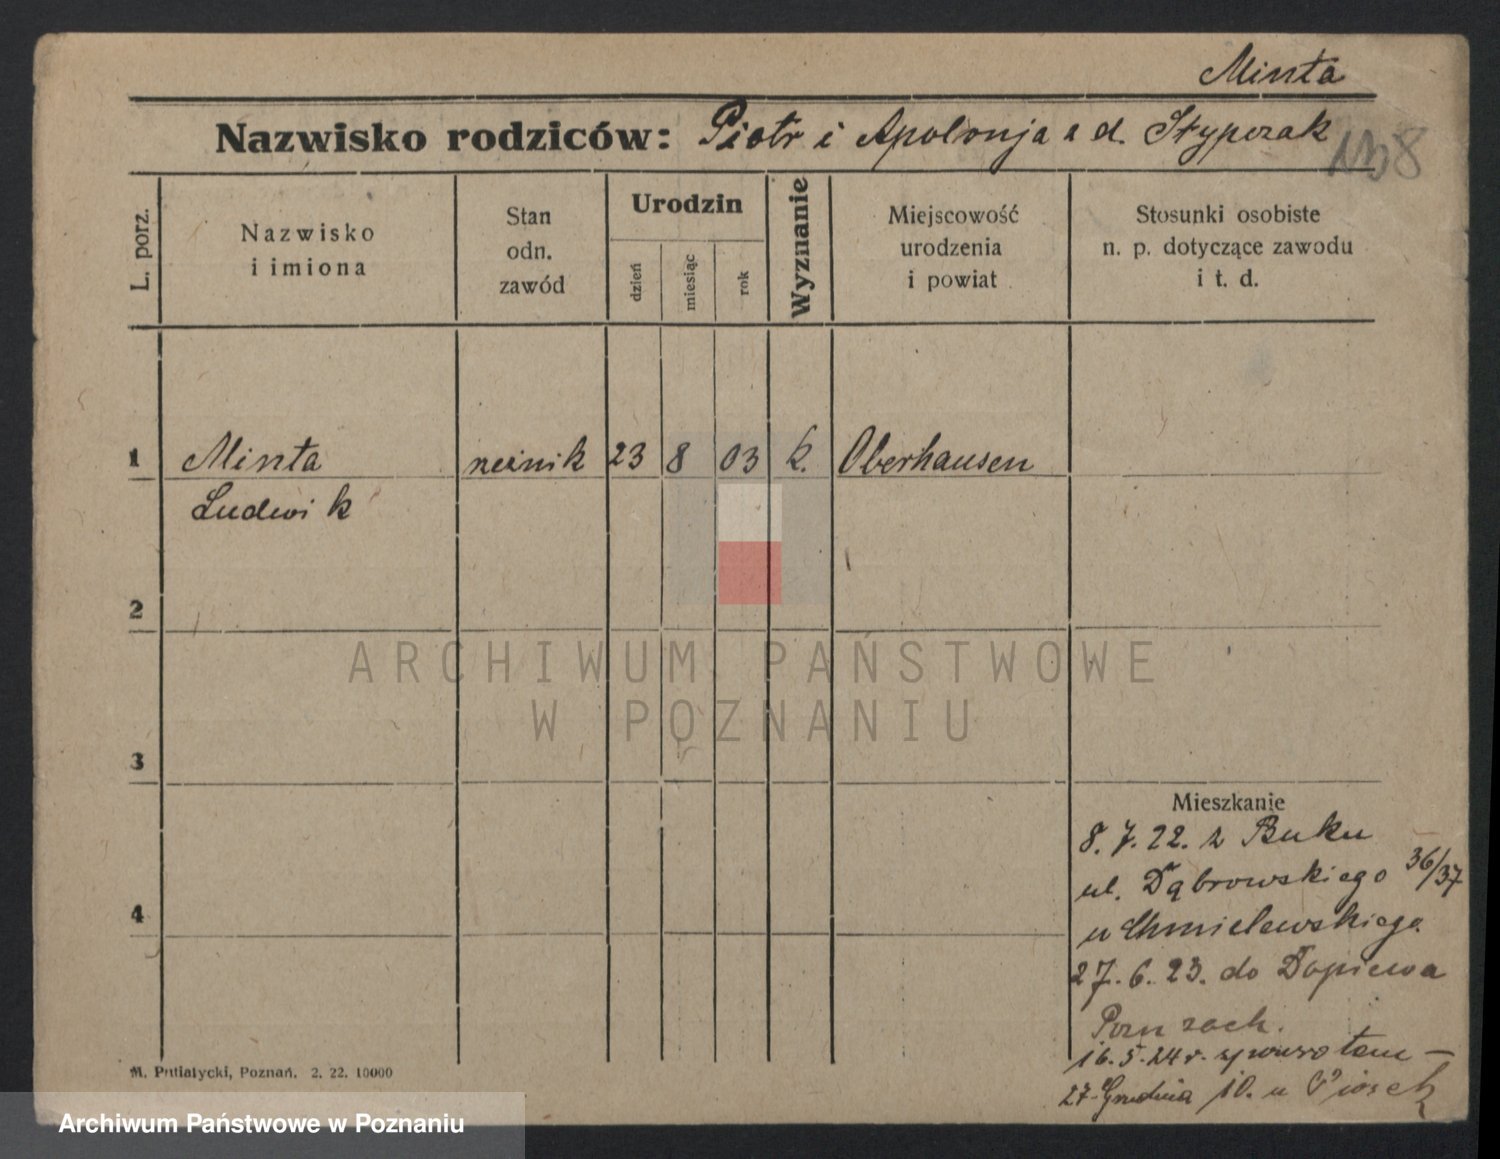 Minta
Nazwisko rodziców: Piotr i Apolonja z d. Stypczak
L. porz.
Nazwisko
i imiona
Stan
odn.
zawód
Urodzin
dzień
miesiąc
rok
Wyznanie
Miejscowość
urodzenia
i powiat
Stosunki osobiste
n. p. dotyczące zawodu
i t. d.
1 Minta rzeźnik 23 8 03 k. Oberhausen
Ludwik
2
ARCHIWUM PAŃSTWOWE
W POZNANIU
3
4
Mieszkanie
8.7.22. z Buku
ul. Dąbrowskiego 36/37
u Chmielewskiego
27.6.23. do Dopiewa
Pozn zach.
16.5.24 r. zpowrotem —
27 Grudnia 10. u
M. Putiatycki, Poznań. 2. 22. 10000
Archiwum Państwowe w Poznaniu